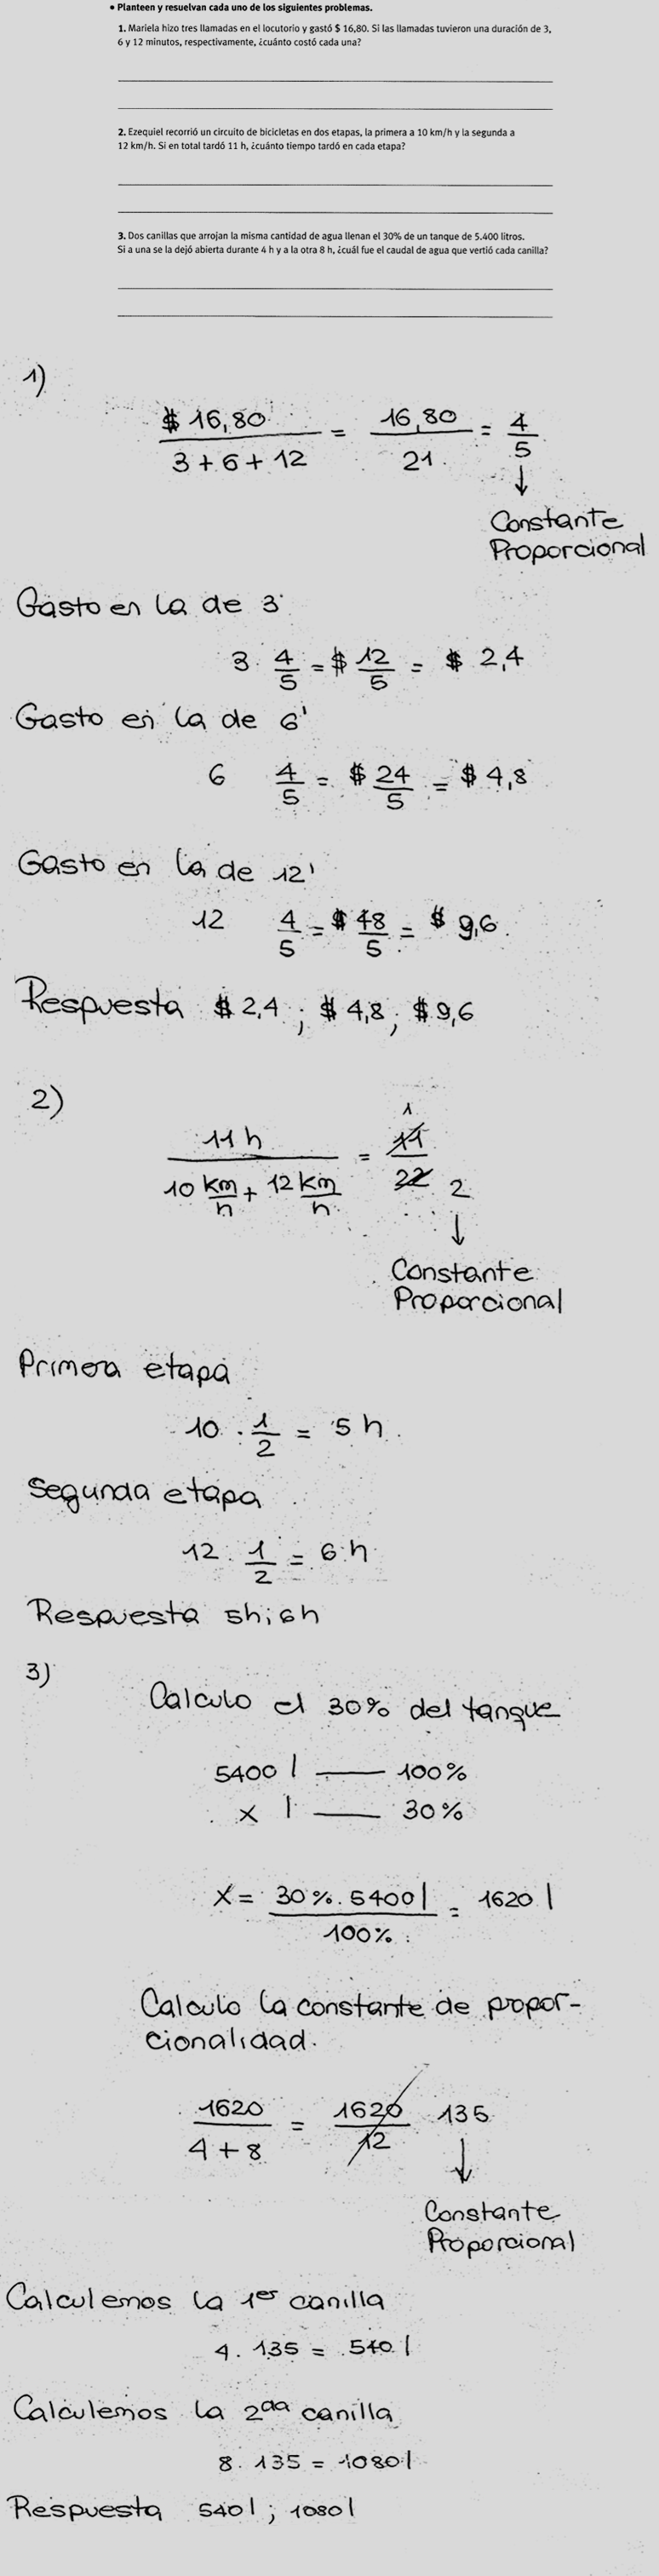 • Planteen y resuelvan cada uno de los siguientes problemas.
1. Mariela hizo tres llamadas en el locutorio y gastó $ 16,80. Si las llamadas tuvieron una duración de 3,
6 y 12 minutos, respectivamente, ¿cuánto costó cada una?
2. Ezequiel recorrió un circuito de bicicletas en dos etapas, la primera a 10 km/h y la segunda a
12 km/h. Si en total tardó 11 h, ¿cuánto tiempo tardó en cada etapa?
3. Dos canillas que arrojan la misma cantidad de agua llenan el 30% de un tanque de 5.400 litros.
Si a una se la dejó abierta durante 4 h y a la otra 8 h, ¿cuál fue el caudal de agua que vertió cada canilla?
1)
$ 16,80 / 3 + 6 + 12 = 16,80 / 21 = 4/5
↓
Constante
Proporcional
Gasto en la de 3'
3 · 4/5 = $ 12/5 = $ 2,4
Gasto en la de 6'
6 4/5 = $ 24/5 = $ 4,8
Gasto en la de 12'
12 4/5 = $ 48/5 = $ 9,6
Respuesta $ 2,4 ; $ 4,8 ; $ 9,6
2)
11 h / 10 km/h + 12 km/h = 11 / 22 1 2
↓
Constante
Proporcional
Primera etapa
10 · 1/2 = 5 h
Segunda etapa
12 · 1/2 = 6 h
Respuesta 5h ; 6h
3)
Calculo el 30% del tanque
5400 l — 100%
x l — 30%
X = 30% . 5400 l / 100% = 1620 l
Calculo la constante de propor-
cionalidad.
1620 / 4 + 8 = 1620 / 12 135
↓
Constante
Proporcional
Calculemos la 1er canilla
4 . 135 = 540 l
Calculemos la 2da canilla
8 . 135 = 1080 l
Respuesta 540 l ; 1080 l